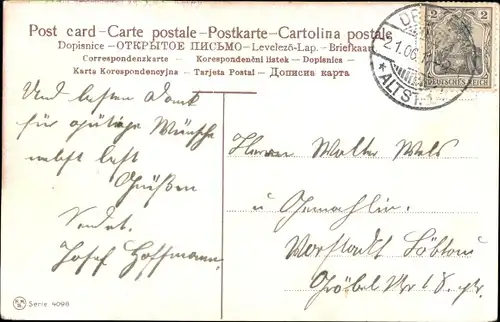 Post card - Carte postale - Postkarte - Cartolina postale
Dopisnice - ОТКРЫТОЕ ПИСЬМО - Levelező-Lap. - Briefkaart
Correspondenzkarte - Korespondenční lístek - Dopisnica -
Karta Korespondencyjna - Tarjeta Postal - Дописна карта
2 2
DEUTSCHES REICH
2.1.06
* ALTST.
Und besten Dank
für gütige Wünsche
nebst best
Grüßen
Sendet
Josef Hoffmann.
Herrn Walter Wels
u Gemahlin.
Vorstadt Löbtau
Gröbel
Serie 4098